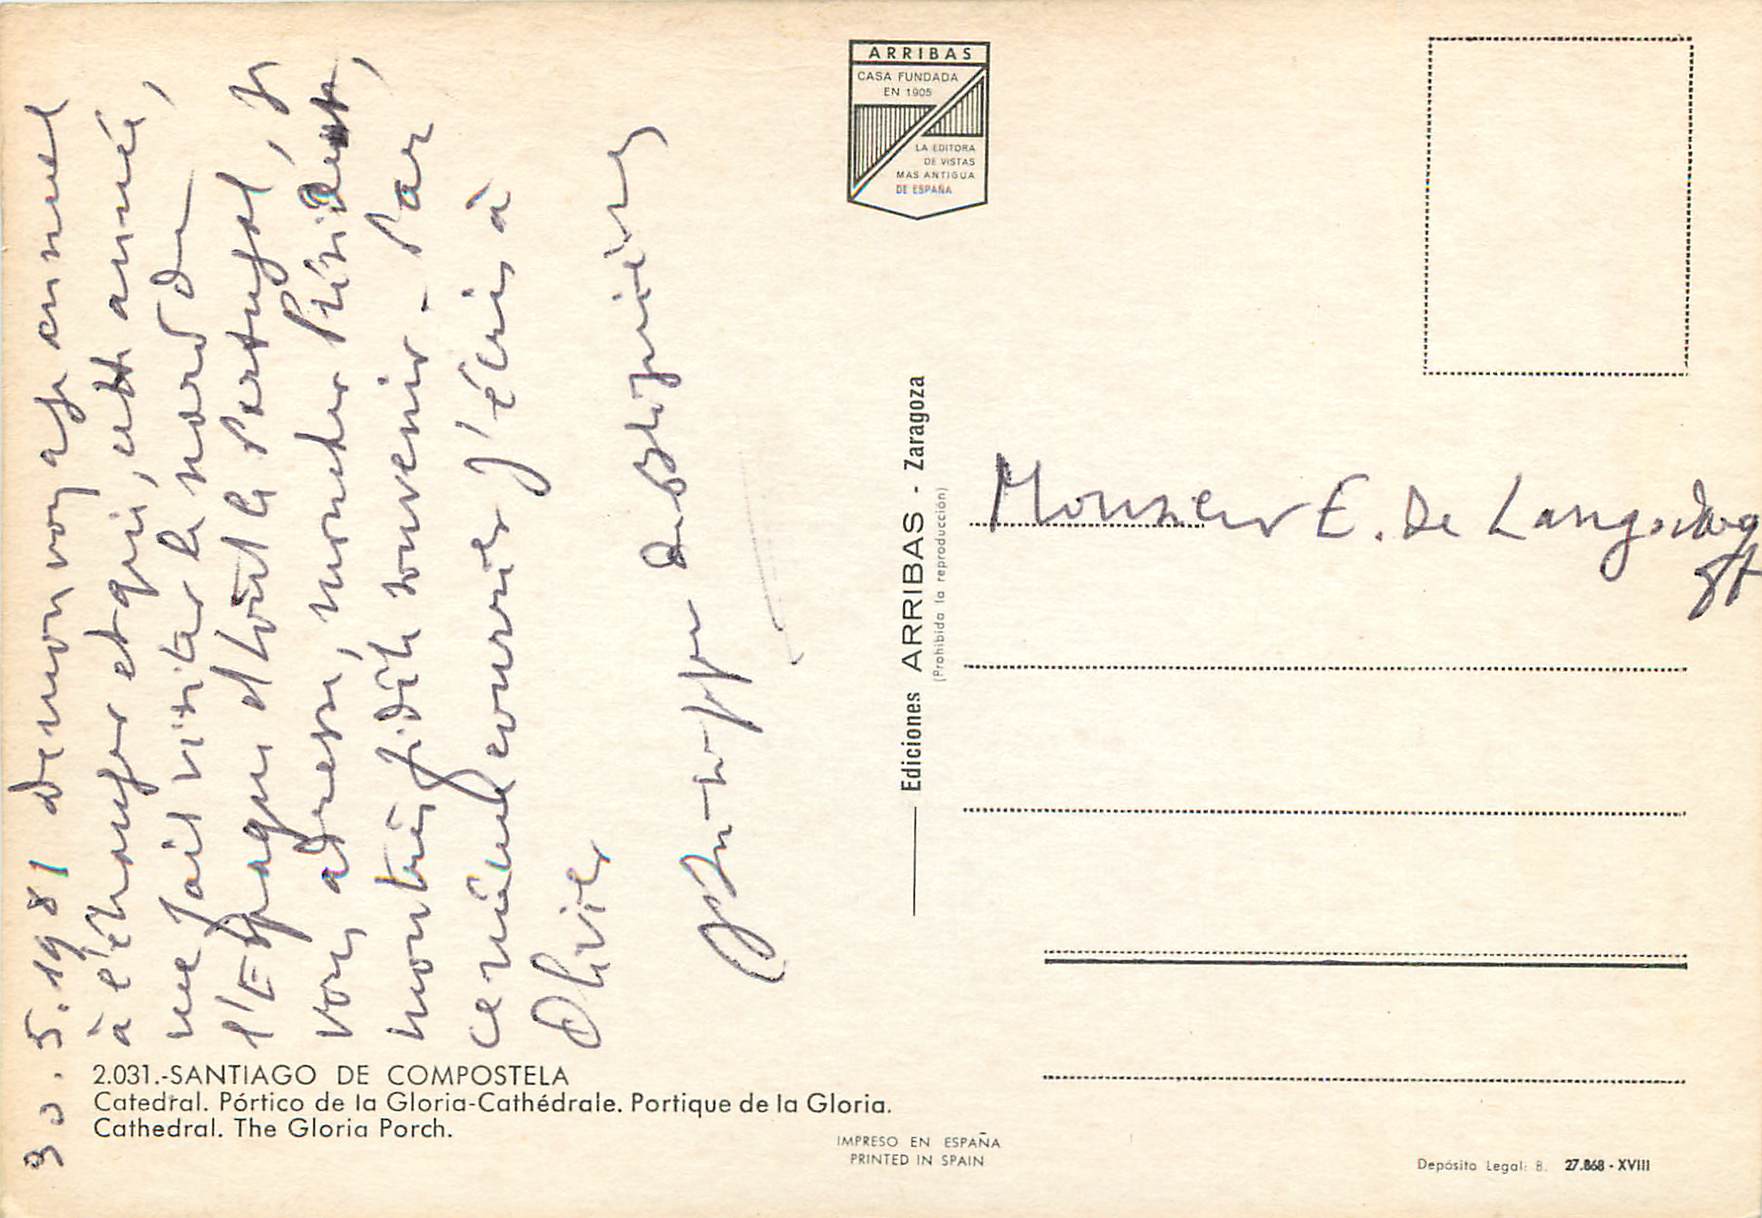 30.5.1981 De mon voyage annuel
à l'étranger et qui, cette année,
me fait visiter le nord de
l'Espagne et tout le Portugal, je
vous adresse, Monsieur Président,
mon très fidèle souvenir - Par
ce même courrier j'écris à
Olivier
ARRIBAS
CASA FUNDADA
EN 1905
LA EDITORA
DE VISTAS
MAS ANTIGUA
DE ESPAÑA
Ediciones ARRIBAS - Zaragoza
(Prohibida la reproducción)
Monsieur E. De
2.031.-SANTIAGO DE COMPOSTELA
Catedral. Pórtico de la Gloria-Cathédrale. Portique de la Gloria.
Cathedral. The Gloria Porch.
IMPRESO EN ESPAÑA
PRINTED IN SPAIN
Depósito Legal: B. 27.868 - XVIII